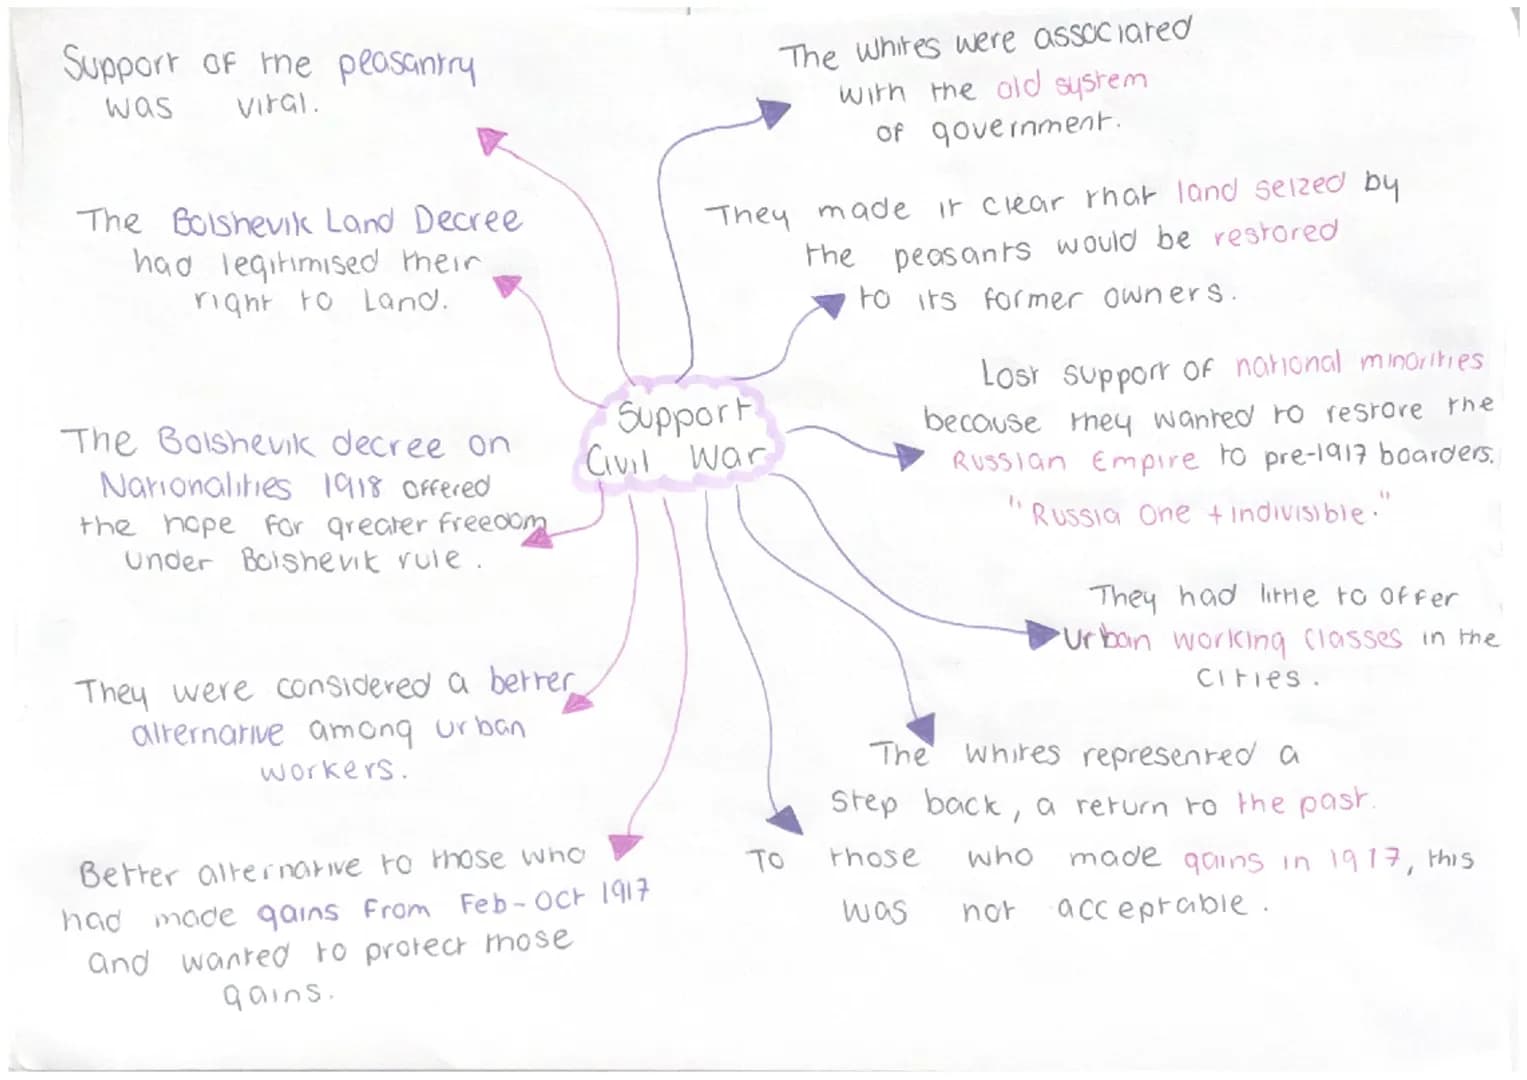 Support of the peasantry
was vital.
The Bolshevik Land Decree
had legitimised their
right to Land.
The Bolshevik decree on
Nationalities 1918 offered
the hope for greater freedom
under Bolshevik rule.
They were considered a better
alternative among urban
workers.
Better alternative to those who
had made gains from Feb-Oct 1917
and wanted to protect those
gains.
Support
Civil War
The Whites were associated
with the old system
of government.
They made it clear that land seized by
the peasants would be restored
to its former owners.
Lost support of national minorities
because they wanted to restore the
Russian Empire to pre-1917 boarders.
"Russia One + indivisible."
They had little to offer
Urban working classes in the
cities.
The Whites represented a
step back, a return to the past.
To those who made gains in 1917, this
was not acceptable.